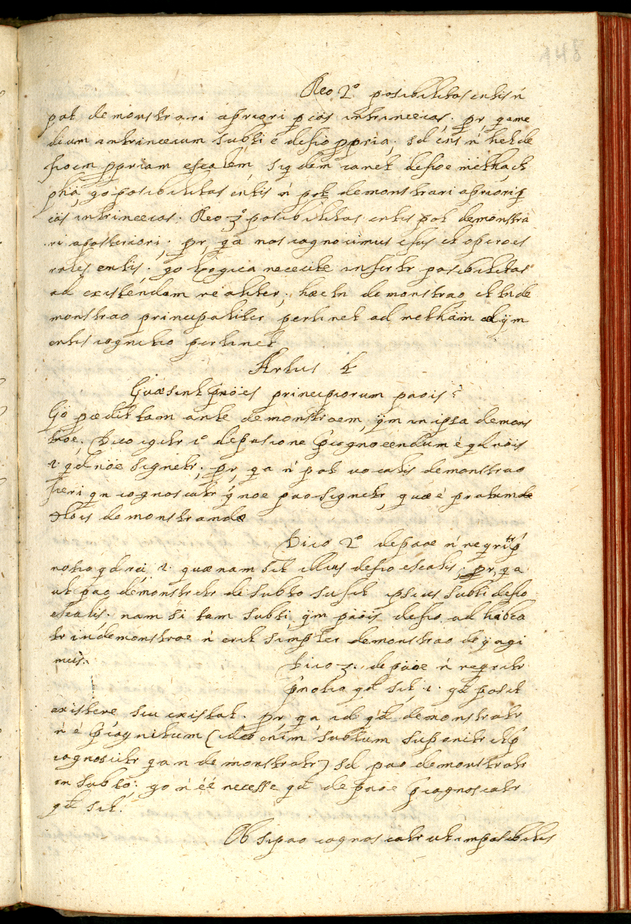 Reo 2º possibilitas entis ñ
pot demonstrari apriori p cās intrinsecas. pr. q. ame
dium intrinsecum subti è defio ppria. sd ens ñ het de
fioem ppriam essalem siqdem caret defioe methach
pha, go possibilitas entis ñ pot demonstrari apriori p
cās intrinsecas. Reo 3 possibilitas entis pot demonstra
ri aposteriori. pr, qa nos cognocimus esus et operoes
entis, go logica necelite infertr possibilitas
ad existendam realiter, haec tn demonstrao et
monstrao principaliter pertinet ad metham ad qm
entis cognitio pertinet
Artus
Quaesint pnoes principiorum paois?
Go paedictam ante demonstraem, qm in ipsa demons
troe, Dico igitr 1º depasione pcognocendum è qd nois
i qd nõe signetr, pr, qa ñ pot vocalis demonstrao
fieri qn cognoscatr q nõe pao signetr, quae è praeimde
demonstrandæ
Dico 2º depaoe ñ reqritr p
notio qd rei i. quaenam sit illius defio esealis, pr, qa
ut pao demonstretr de subto sufit ipsius subti defio
esealis. nam si tam subti qm paois defio adhibea
tr indemonstroe ñ erit simplr demonstrao de q agi
mus. Dico 3. depaoe ñ reqritr
pnotio qd sit i. qd posit
existere seu existat. pr qa id qd demonstratr
ñ è pcognitum (ideo enim subtum suponitr et p
cognoscitr qa n demonstratr) sd pao demonstratr
in subto, go ñ éé necesse qd de paoe pcognoscatr
qd sit.
Ob si pao cognoscatr ut impossibilis